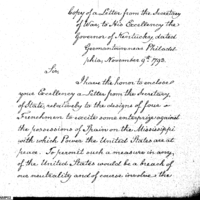 Copy of a Letter from the Secretary
of War, to His Excellency the
Governor of Kentucky, dated
Germantown near Philadel
phia, November 9th 1793.
Sir,
I have the honor to enclose
your Excellency a Letter from the Secretary
of State, relatively to the designs of four
Frenchmen to excite some enterprize against
the possessions of Spain on the Mississippi
with which Power the United States are at
peace. To permit such a measure in any
of the United States would be a breach of
our neutrality and of course involve the